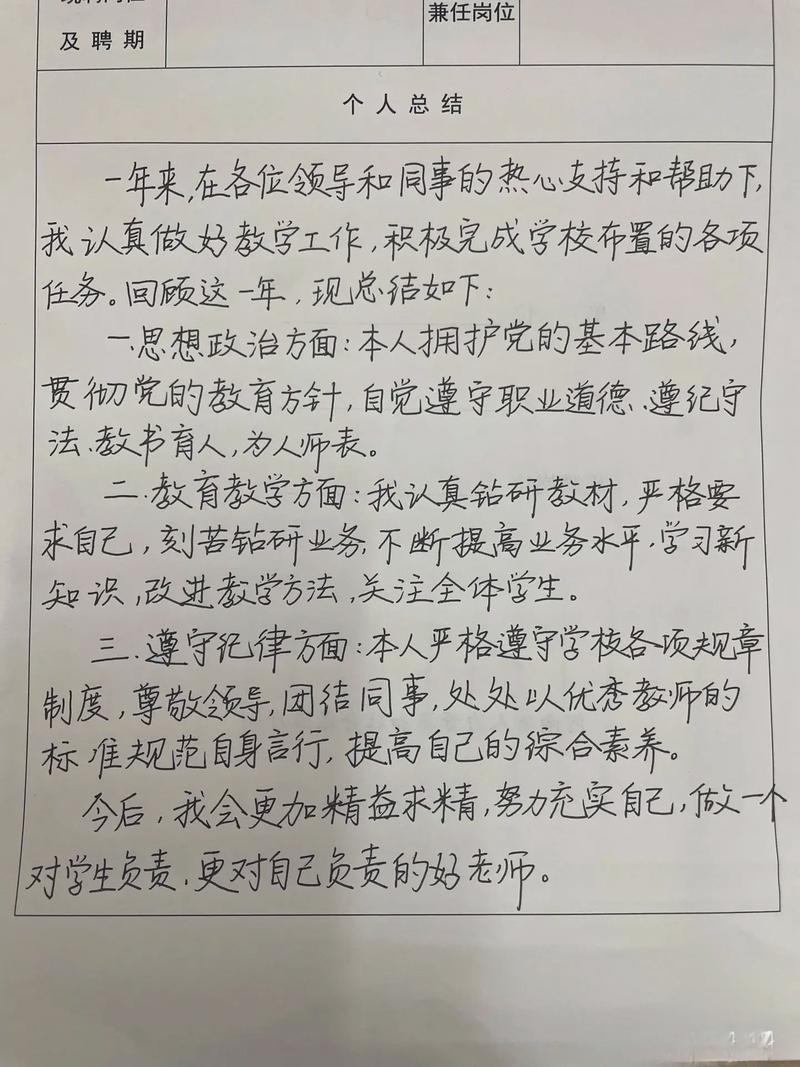 及聘期
兼任岗位
个人总结
一年来,在各位领导和同事的热心支持和帮助下,
我认真做好教学工作,积极完成学校布置的各项
任务。回顾这一年,现总结如下:
一.思想政治方面:本人拥护党的基本路线,
贯彻党的教育方针,自觉遵守职业道德、遵纪守
法、教书育人,为人师表。
二.教育教学方面:我认真钻研教材,严格要
求自己,刻苦钻研业务,不断提高业务水平,学习新
知识,改进教学方法,关注全体学生。
三.遵守纪律方面:本人严格遵守学校各项规章
制度,尊敬领导,团结同事,处处以优秀教师的
标准规范自身言行,提高自己的综合素养。
今后,我会更加精益求精,努力充实自己,做一个
对学生负责,更对自己负责的好老师。